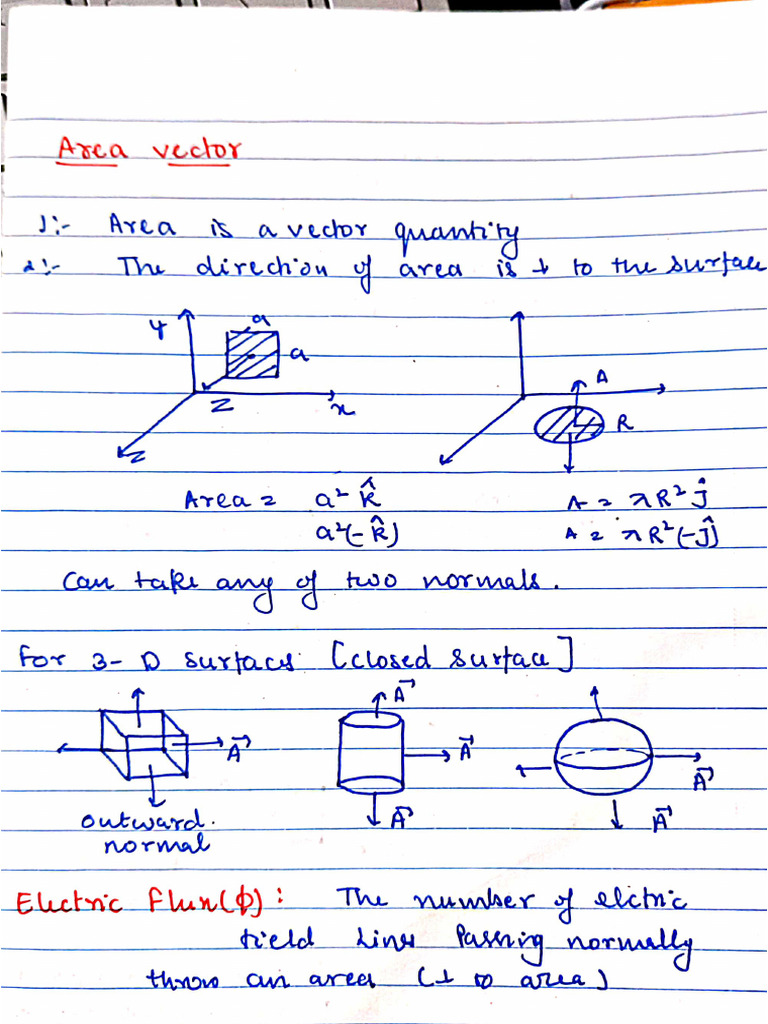 Area vector
1:- Area is a vector quantity
2:- The direction of area is ⊥ to the surface
y a
a
z x
z
A
R
Area = a² k̂
a²(-k̂)
A = πR² ĵ
A = πR²(-ĵ)
Can take any of two normals.
for 3-D surfaces [closed surface]
A⃗
A⃗
A⃗
A⃗
A⃗
A⃗
outward.
normal
Electric Flux(ϕ): The number of elctric
field lines Passing normally
throw an area (⊥ to area)